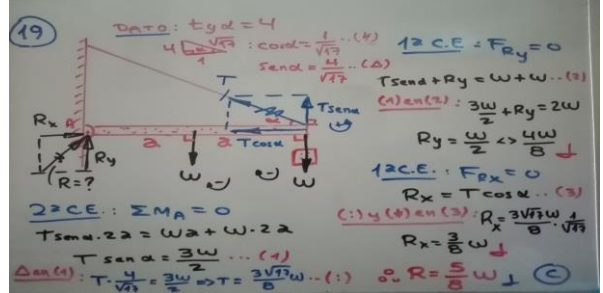 19
DATO: tgα = 4
4 √17 1 : cosα = 1/√17 ..(*)
senα = 4/√17 ..(Δ)
T
Tsenα
α
Rx
A
a
a
Tcosα
Ry
R=?
ω
ω
2ªC.E.: ΣM_A = 0
Tsenα·2a = ωa + ω·2a
Tsenα = 3ω/2 ...(1)
Δen(1): T·4/√17 = 3ω/2 => T = 3√17/8 ω ..(:)
1ªC.E: F_Ry = 0
Tsenα + Ry = ω + ω ..(2)
(1)en(2): 3ω/2 + Ry = 2ω
Ry = ω/2 <> 4ω/8
1ªC.E.: F_Rx = 0
Rx = Tcosα ..(3)
(:) y (*) en (3): Rx = 3√17ω/8 · 1/√17
Rx = 3/8 ω
∴ R = 5/8 ω
C